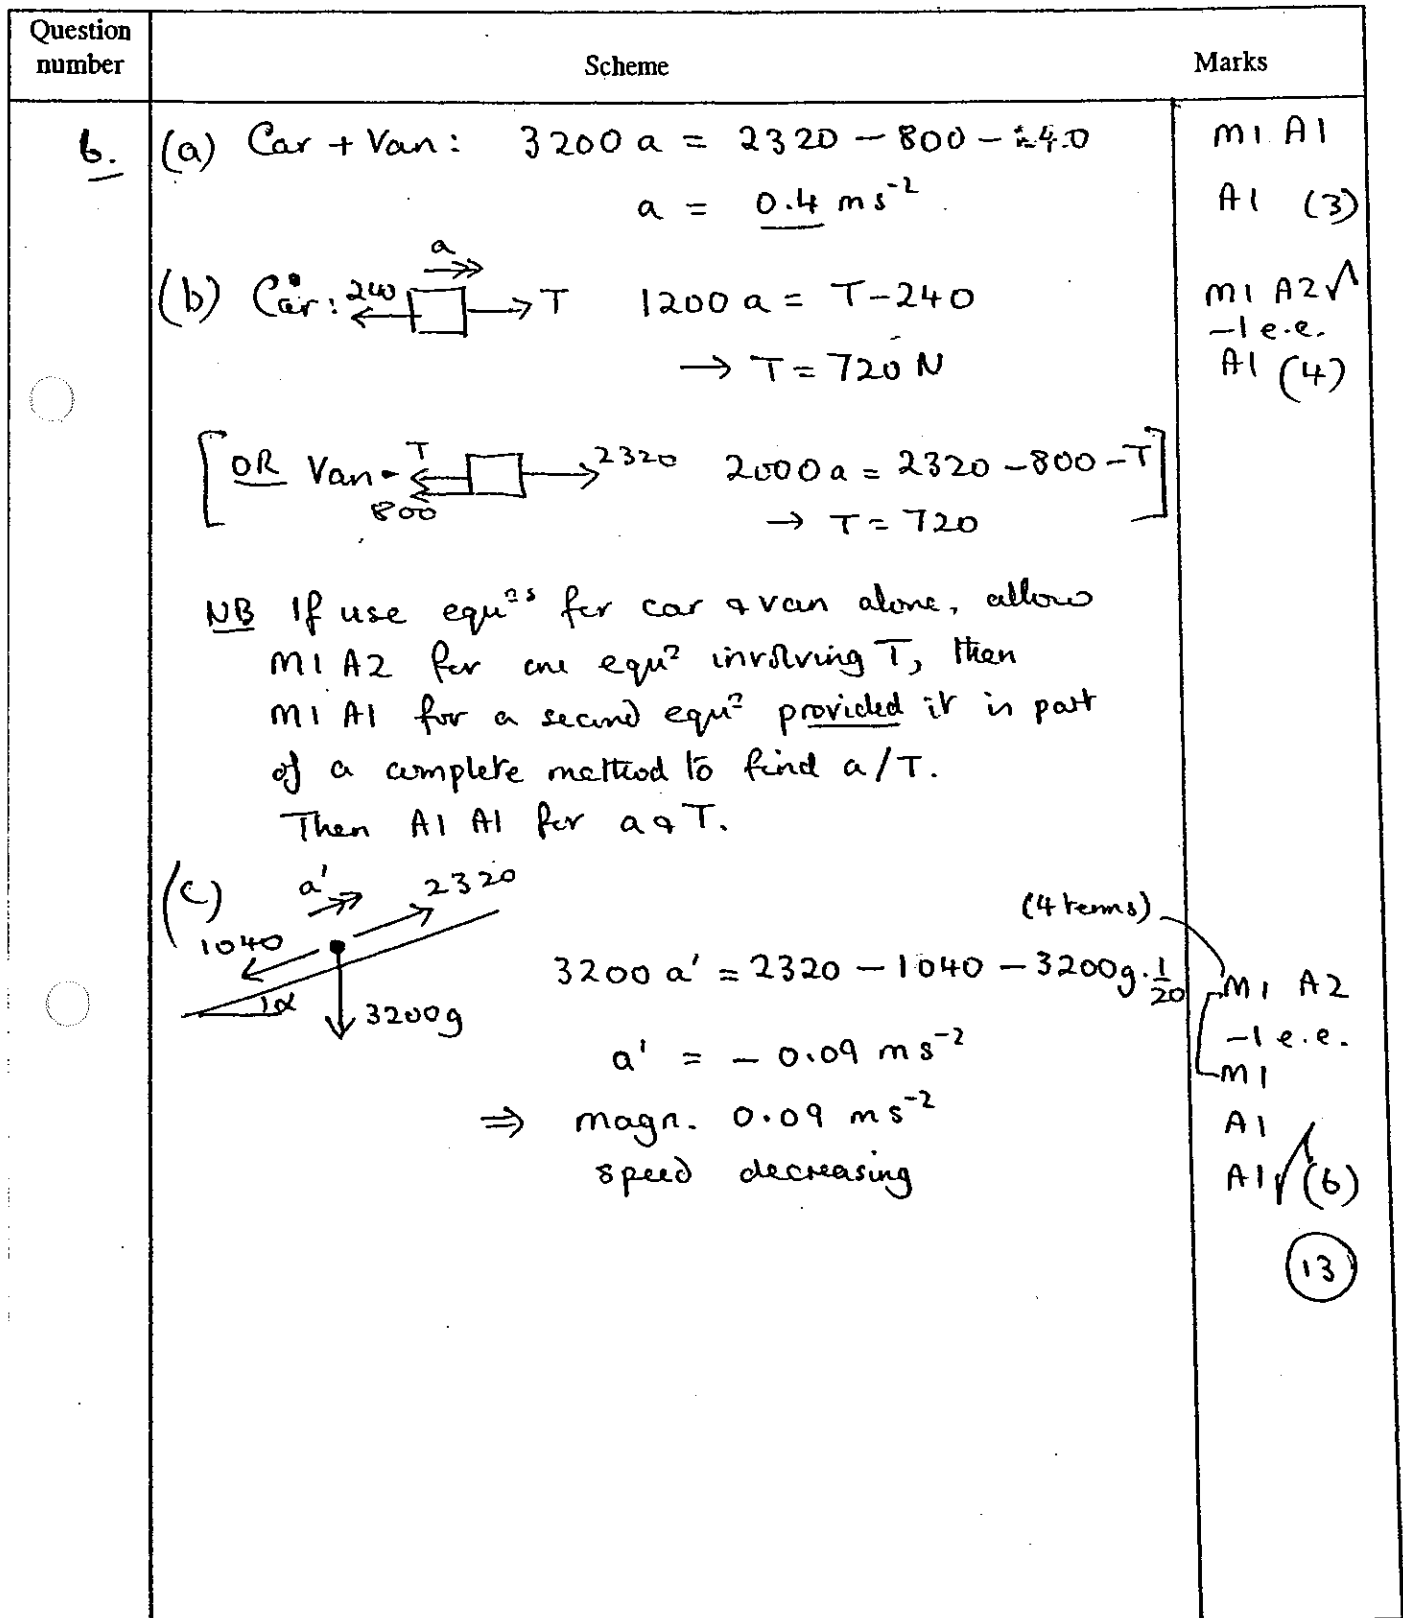 Question number Scheme Marks
6. (a) Car + Van: 3200 a = 2320 − 800 − 240 M1 A1
a = 0.4 ms⁻² A1 (3)
a
(b) Car: 240 T 1200 a = T − 240 M1 A2√
−1 e.e.
→ T = 720 N A1 (4)
[OR Van T 2320 2000 a = 2320 − 800 − T]
800 → T = 720
NB If use equⁿs for car & van alone, allow
M1 A2 for one equⁿ involving T, then
M1 A1 for a second equⁿ provided it is part
of a complete method to find a/T.
Then A1 A1 for a & T.
(c) a' 2320 (4 terms)
1040 3200 a' = 2320 − 1040 − 3200g.1/20 M1 A2
α 3200g −1 e.e.
a' = − 0.09 ms⁻² M1
⇒ magn. 0.09 ms⁻² A1
speed decreasing A1√ (6)
13